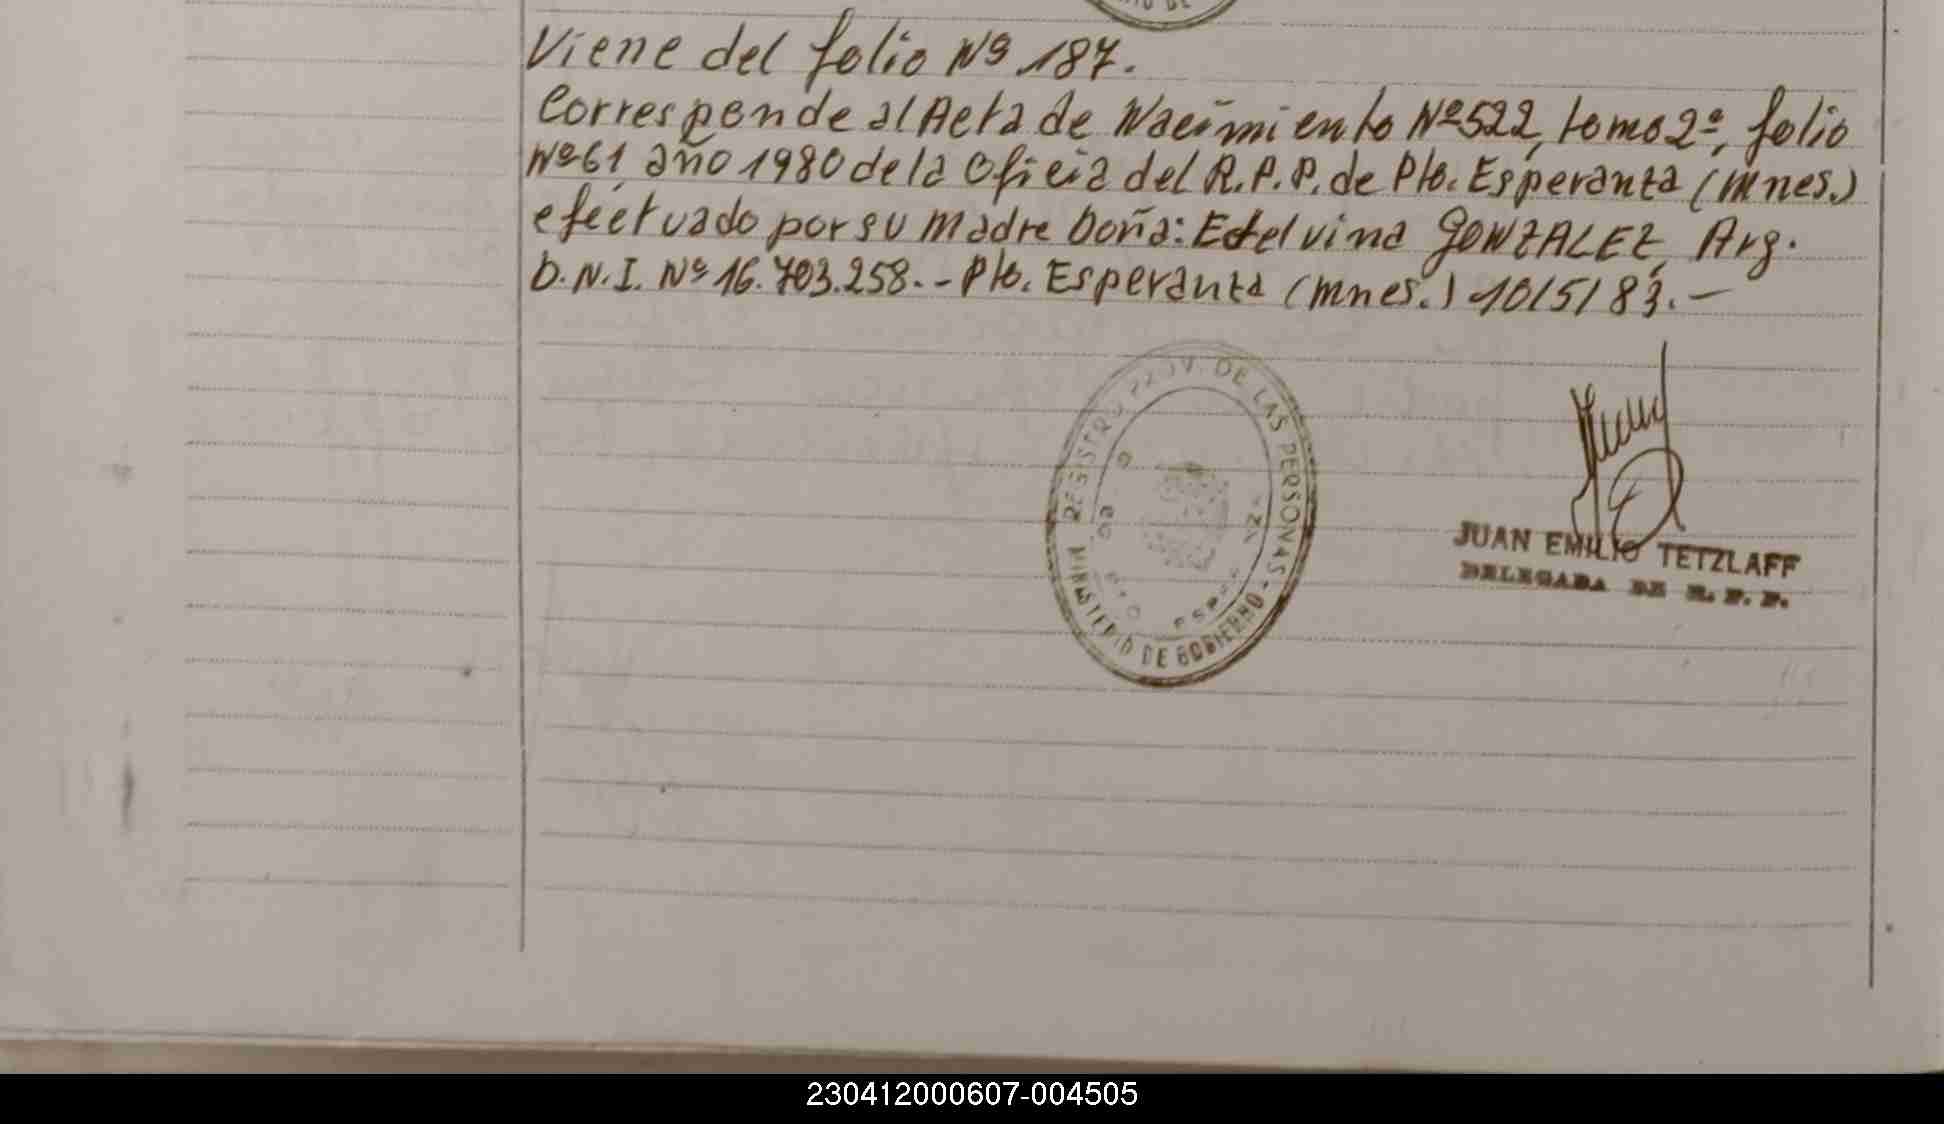 Viene del folio Nº 187.
Corresponde al Acta de Nacimiento Nº 522, tomo 2º, folio
Nº 61, año 1980 de la Oficia del R.P.P. de Pto. Esperanza (Mnes.)
efectuado por su madre Doña: Etelvina GONZALEZ, Arg.
D.N.I. Nº 16.703.258.-- Pto. Esperanza (Mnes.) 10/5/83.-
REGISTRO PROV. DE LAS PERSONAS -
MINISTERIO DE GOBIERNO -
JUAN EMILIO TETZLAFF
DELEGADA DE R. P. P.
230412000607-004505